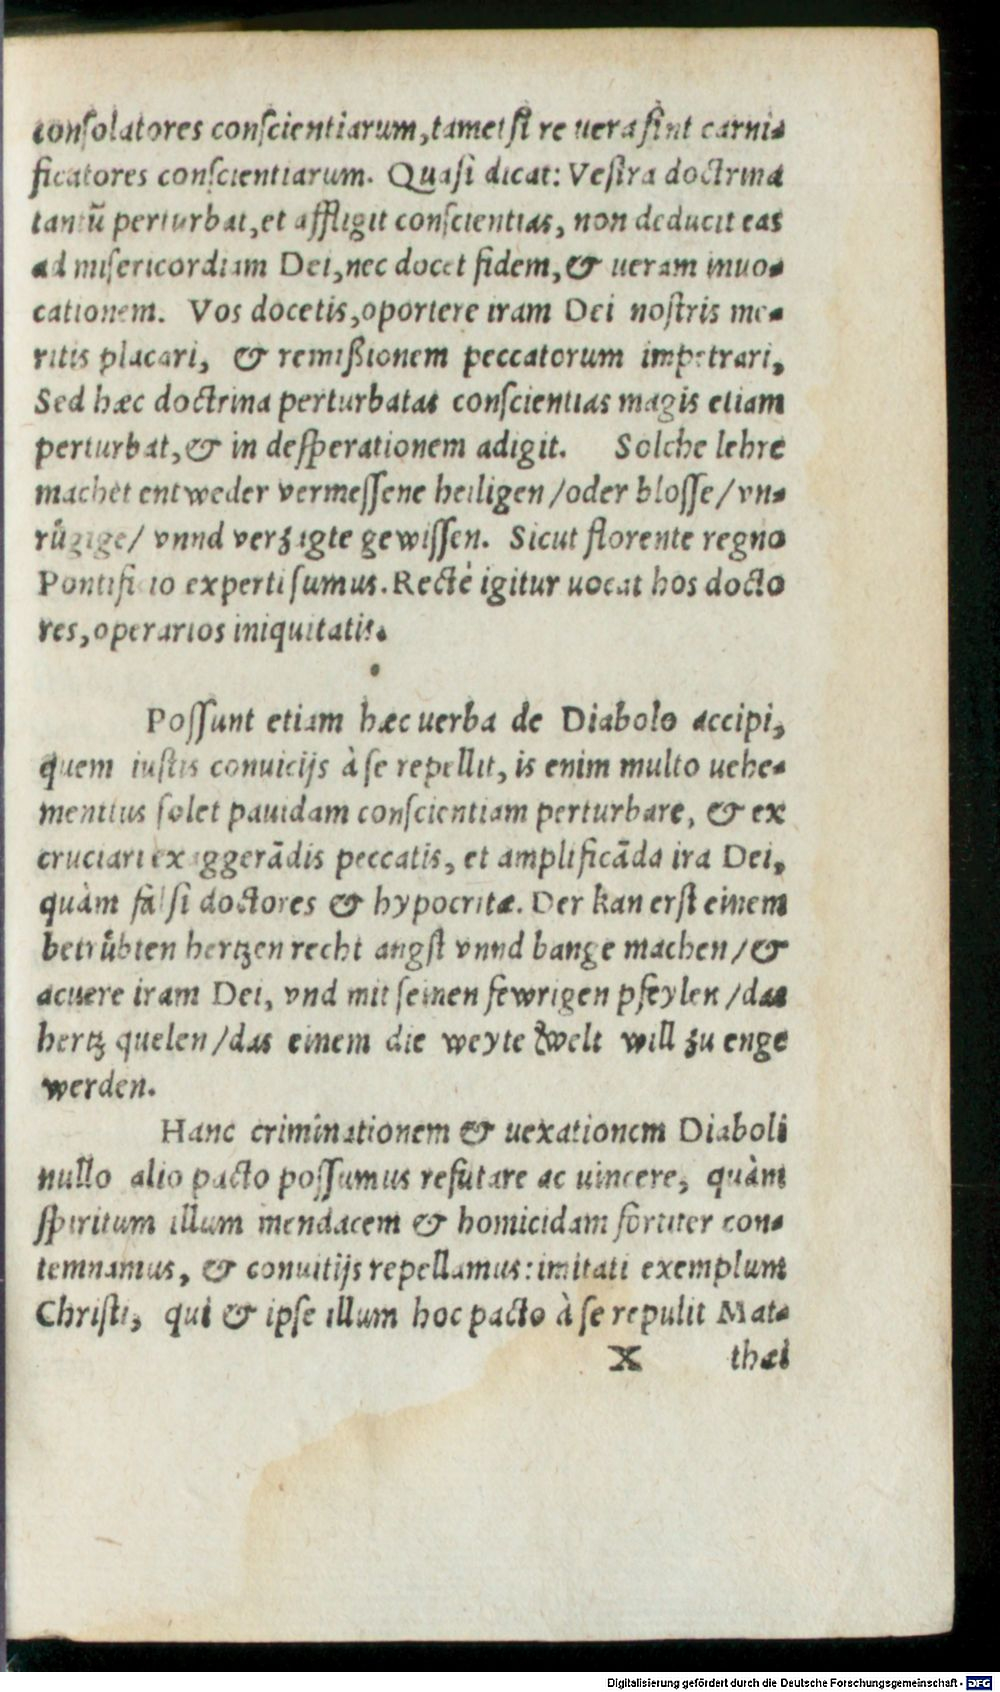 conſolatores conſcientiarum, tametſi re uera ſint carni-
ficatores conſcientiarum. Quaſi dicat: Veſtra doctrina
tantū perturbat, et affligit conſcientias, non deducit eas
ad miſericordiam Dei, nec docet fidem, & ueram inuo-
cationem. Vos docetis, oportere iram Dei noſtris me-
ritis placari, & remißionem peccatorum impetrari,
Sed hæc doctrina perturbatas conſcientias magis etiam
perturbat, & in deſperationem adigit. Solche lehre
machet entweder vermeſſene heiligen / oder bloſſe / vn-
rügige / vnnd verzagte gewiſſen. Sicut florente regno
Pontificio experti ſumus. Rectè igitur uocat hos docto
res, operarios iniquitatis.
Poſſunt etiam hæc uerba de Diabolo accipi,
quem iuſtis conuicijs à ſe repellit, is enim multo uehe-
mentius ſolet pauidam conſcientiam perturbare, & ex
cruciari exaggerādis peccatis, et amplificāda ira Dei,
quàm falſi doctores & hypocritæ. Der kan erſt einem
betrübten hertzen recht angſt vnnd bange machen / &
acuere iram Dei, vnd mit ſeinen fewrigen pfeylen / das
hertz quelen / das einem die weyte Welt will zu enge
werden.
Hanc criminationem & uexationem Diaboli
nullo alio pacto poſſumus refutare ac uincere, quàm
ſpiritum illum mendacem & homicidam fortiter con-
temnamus, & conuitijs repellamus: imitati exemplum
Chriſti, qui & ipſe illum hoc pacto à ſe repulit Mat-
X thæi
Digitalisierung gefördert durch die Deutsche Forschungsgemeinschaft - DFG